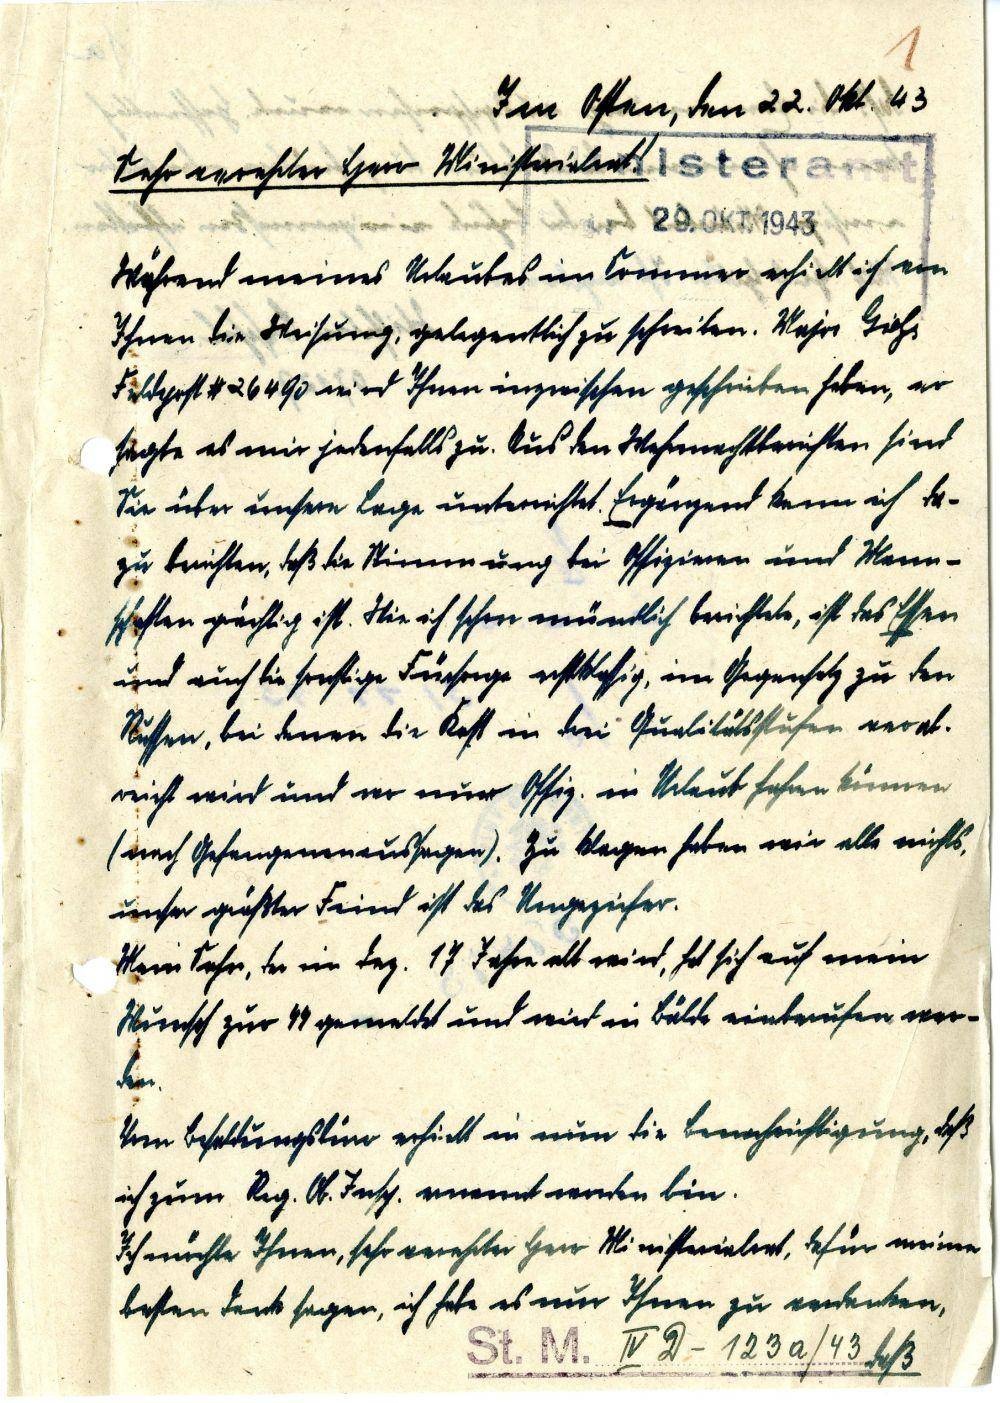 1
Im Osten, den 22. Okt. 43
Sehr verehrter Herr Ministerialrat!
Ministeramt
29. OKT. 1943
Während meines Urlaubes im Sommer erhielt ich von
Ihnen die Weisung, gelegentlich zu schreiben. Major
Feldpost # 26490 wird Ihnen inzwischen geschrieben haben, er
sagte es mir jedenfalls zu. Aus den Wehrmachtberichten sind
Sie über unsere Lage unterrichtet. Ergänzend kann ich da-
zu berichten, daß die Stimmung bei Offizieren und Mann-
schaften prächtig ist. Wie ich schon mündlich berichtete, ist das Essen
und auch die sonstige Fürsorge erstklassig, im Gegensatz zu den
Russen, bei denen die Kost in drei Qualitätsstufen verab-
reicht wird und wo nur Offiz. in Urlaub fahren können
(nach Gefangenenaussagen). Zu klagen haben wir alle nichts,
unser größter Feind ist das Ungeziefer.
Mein Sohn, der im Dez. 17 Jahre alt wird, hat sich auf mein
Wunsch zur SS gemeldet und wird in Bälde einberufen wer-
den.
Vom Besoldungsbüro erhielt ich nun die Benachrichtigung, daß
ich zum Reg. Ob. Insp. ernannt worden bin.
Ich möchte Ihnen, sehr verehrter Herr Ministerialrat, dafür meinen
besten Dank sagen, ich habe es nur Ihnen zu verdanken,
St. M. IV D - 123a/43
daß